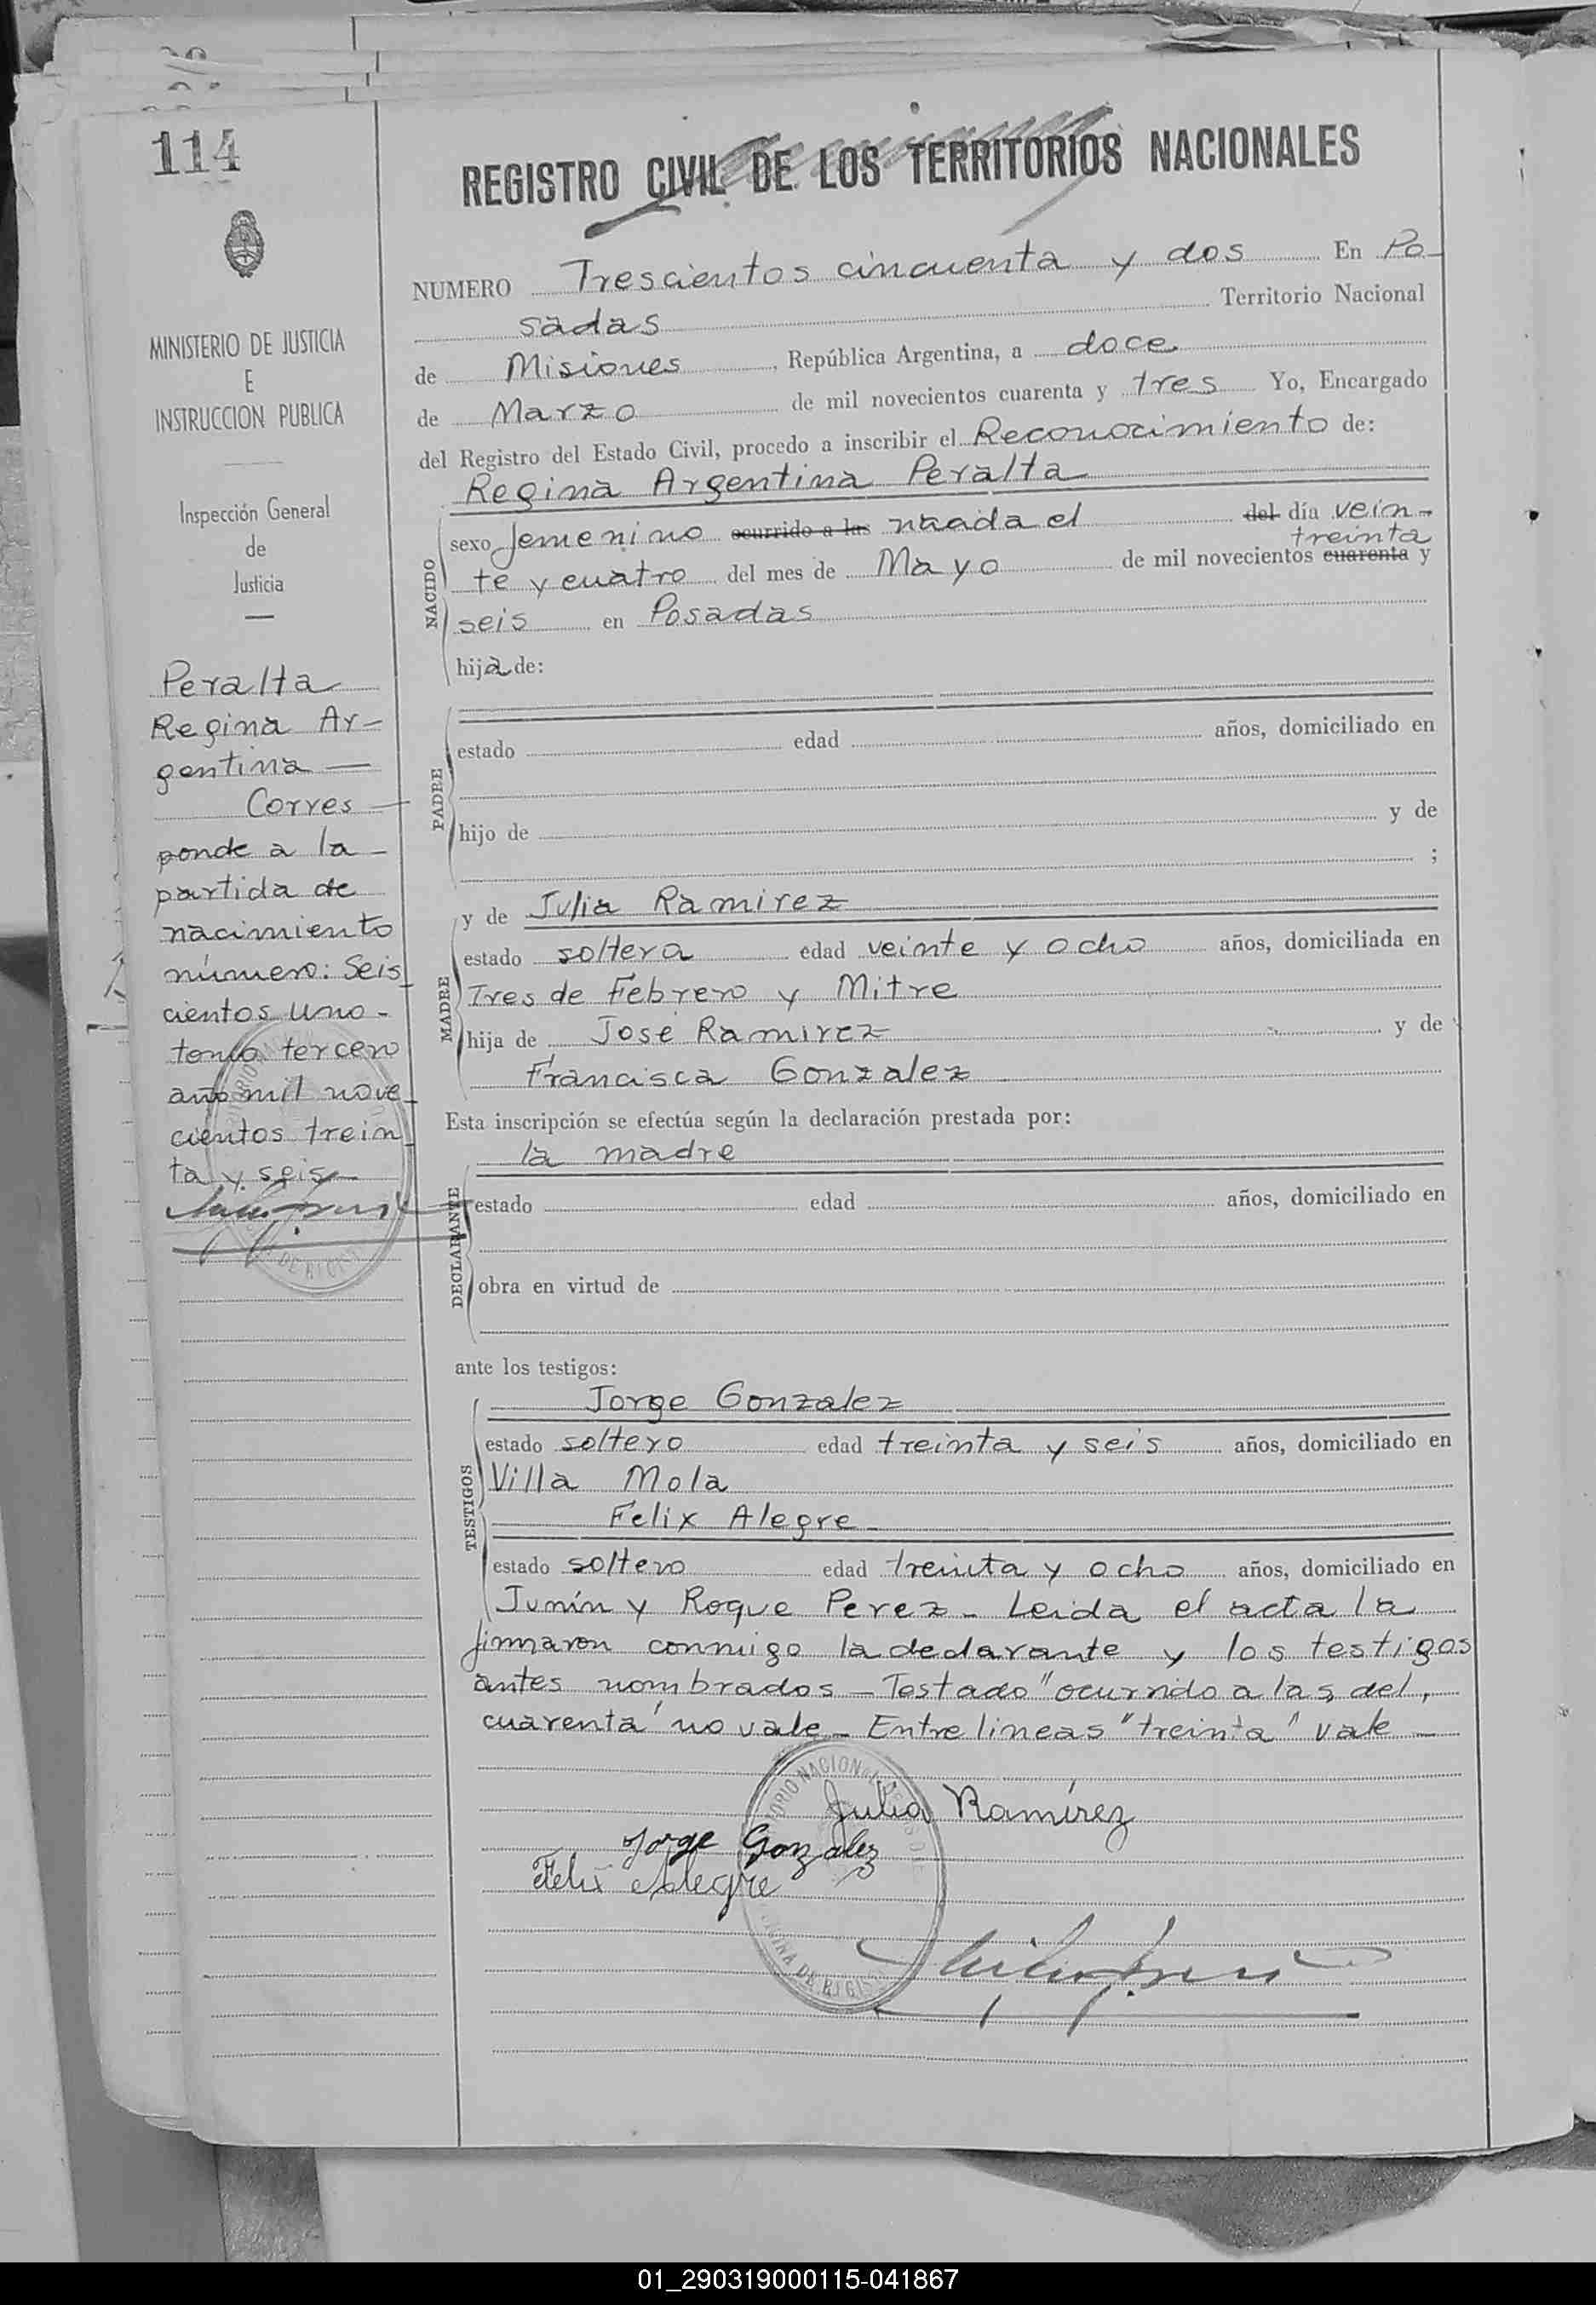 114
REGISTRO CIVIL DE LOS TERRITORIOS NACIONALES
MINISTERIO DE JUSTICIA
E
INSTRUCCION PUBLICA
Inspección General
de
Justicia
Peralta
Regina Ar-
gentina —
Corres-
ponde a la
partida de
nacimiento
número: Seis
cientos uno -
tomo tercero
año mil nove_
cientos trein_
ta y seis
NUMERO Trescientos cincuenta y dos En Po-
sadas Territorio Nacional
de Misiones, República Argentina, a doce
de Marzo de mil novecientos cuarenta y tres Yo, Encargado
del Registro del Estado Civil, procedo a inscribir el Reconocimiento de:
Regina Argentina Peralta
NACIDO
sexo femenino ocurrido a las naada el del día vein-
treinta
te y cuatro del mes de Mayo de mil novecientos cuarenta y
seis en Posadas
hija de:
PADRE
estado edad años, domiciliado en
hijo de y de
;
MADRE
y de Julia Ramirez
estado soltera edad veinte y ocho años, domiciliada en
Tres de Febrero y Mitre
hija de José Ramirez y de
Francisca Gonzalez
Esta inscripción se efectúa según la declaración prestada por:
la madre
DECLARANTE
estado edad años, domiciliado en
obra en virtud de
ante los testigos:
TESTIGOS
Jorge Gonzalez
estado soltero edad treinta y seis años, domiciliado en
Villa Mola
Felix Alegre
estado soltero edad treinta y ocho años, domiciliado en
Junín y Roque Perez - Leida el acta la
firmaron conmigo la declarante y los testigos
antes nombrados - Testado "ocurrido a las, del,
cuarenta" no vale - Entre lineas "treinta" vale -
Julia Ramírez
Jorge Gonzalez
Felix Alegre
01_290319000115-041867